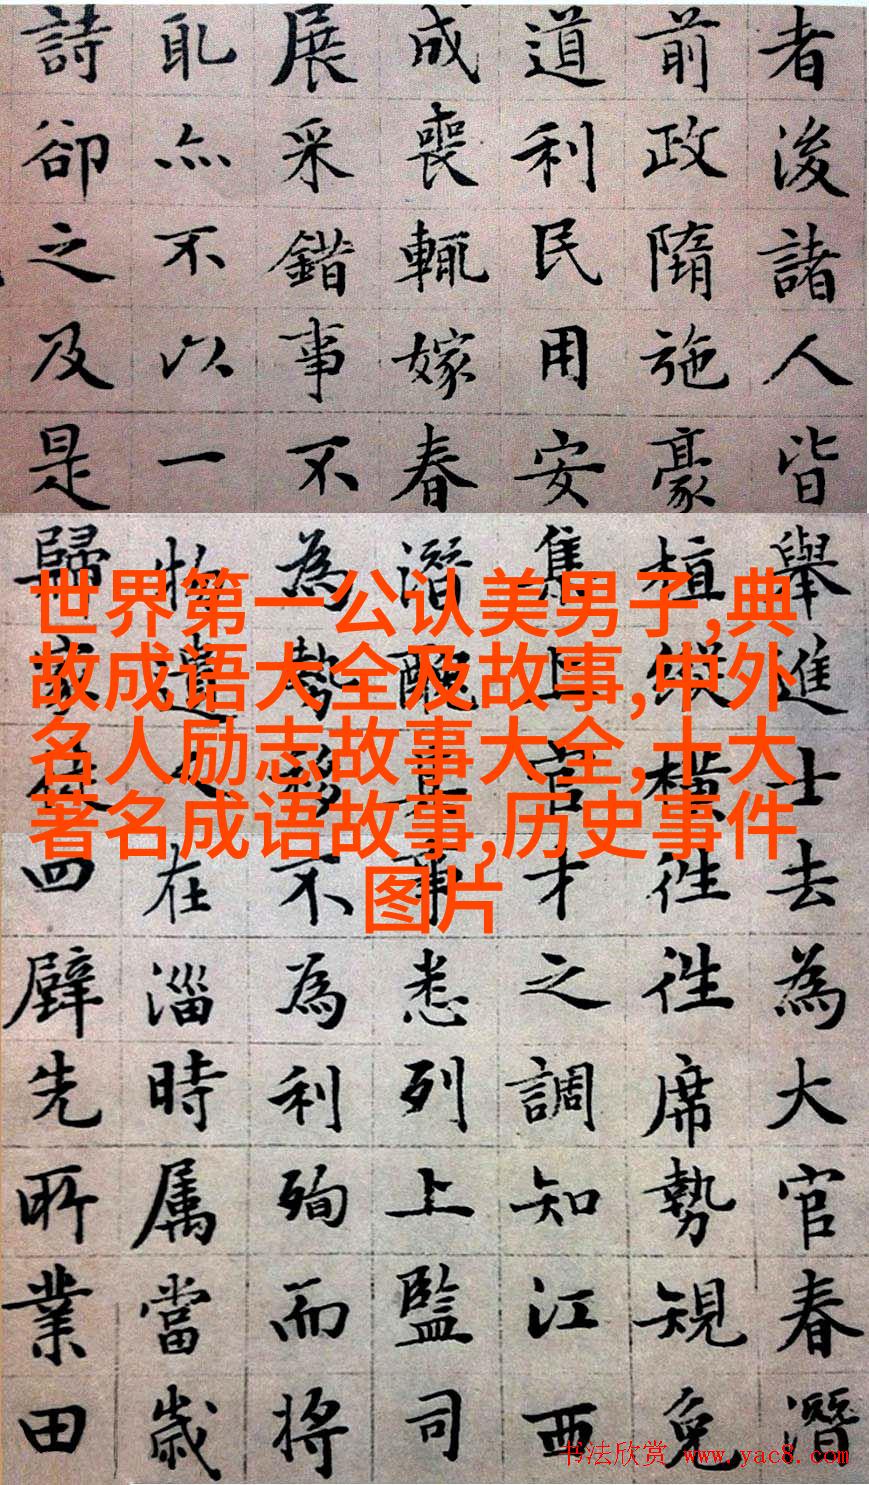 者浚諸人皆舉進士去為大官春潛
前政隋施豪植縱橫徃徃席勢規免
道利民用安上官才之調知江西
成喪輒嫁春潛醜其事悉列上監司
展采錯事不為勢移不為利殉而將
耴亦不以一物遺人在淄時属當歲
詩卻之及是歸家徒四壁先所業田
世界第一公认美男子,典
故成语大全及故事,中外
名人励志故事大全,十大
著名成语故事,历史事件
图片
书法欣赏 www.yac8.com